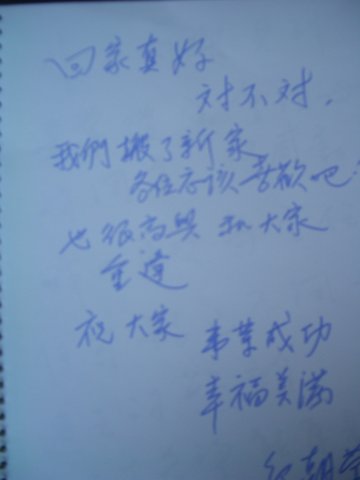 回家真好
对不对，
我们搬了新家
各位应该喜欢吧
也很高兴 和大家
重逢
祝大家 事業成功
幸福美满